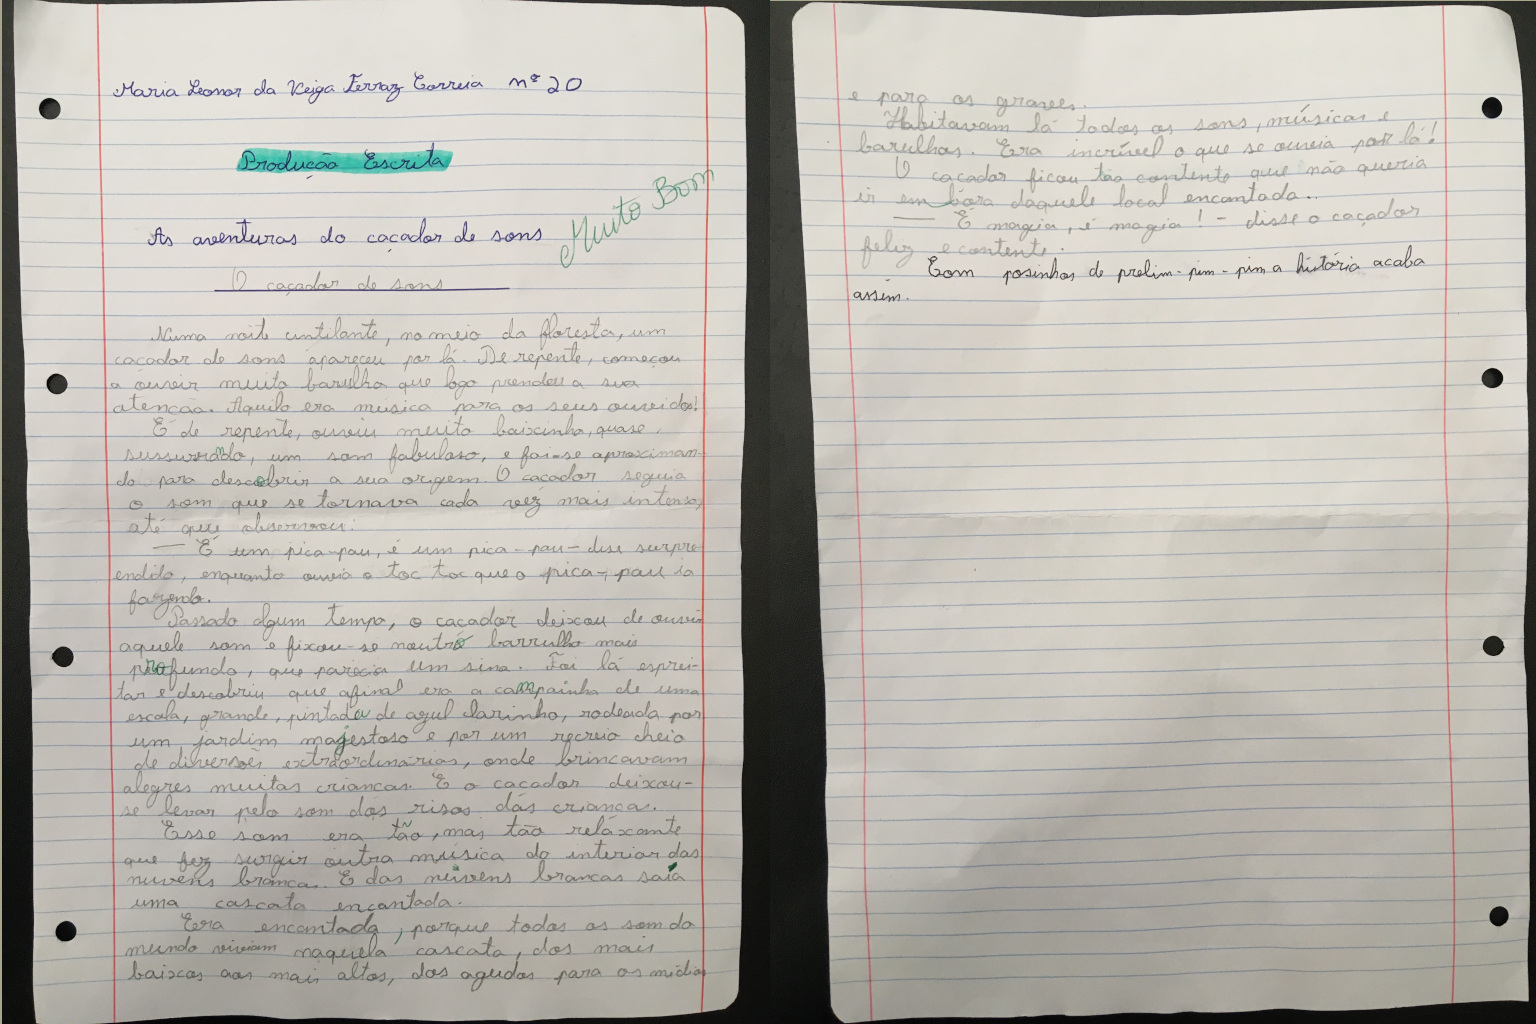 Maria Leonor da Veiga Ferraz Correia nº 20
Produção Escrita
Muito Bom
As aventuras do caçador de sons
O caçador de sons
Numa noite cintilante, no meio da floresta, um
caçador de sons apareceu por lá. De repente, começou
a ouvir muito barulho que logo prendeu a sua
atenção. Aquilo era música para os seus ouvidos!
E de repente, ouviu muito baixinho, quase
sussurrando, um som fabuloso, e foi-se aproximan-
do para descobrir a sua origem. O caçador seguia
o som que se tornava cada vez mais intenso,
até que observou:
— É um pica-pau, é um pica-pau - disse surpre-
endido, enquanto ouvia o toc toc que o pica-pau ia
fazendo.
Passado algum tempo, o caçador deixou de ouvir
aquele som e fixou-se noutro barrulho mais
profundo, que parecia um sino. Foi lá esprei-
tar e descobriu que afinal era a campainha de uma
escola, grande, pintada de azul clarinho, rodeada por
um jardim majestoso e por um recreio cheio
de diversões extraordinárias, onde brincavam
alegres muitas crianças. E o caçador deixou-
se levar pelo som dos risos das crianças.
Esse som era tão, mas tão relaxante
que fez surgir outra música do interior das
nuvens brancas. E das nuvens brancas saía
uma cascata encantada.
Era encantada, porque todos os som do
mundo viviam naquela cascata, dos mais
baixos aos mais altos, dos agudos para os médios
e para os graves.
Habitavam lá todos os sons, músicas e
barulhos. Era incrível o que se ouvia por lá!
O caçador ficou tão contente que não queria
ir em bora daquele local encantado..
— É magia, é magia! - disse o caçador
feliz e contente.
Com posinhos de prelim-pim-pim a história acaba
assim.